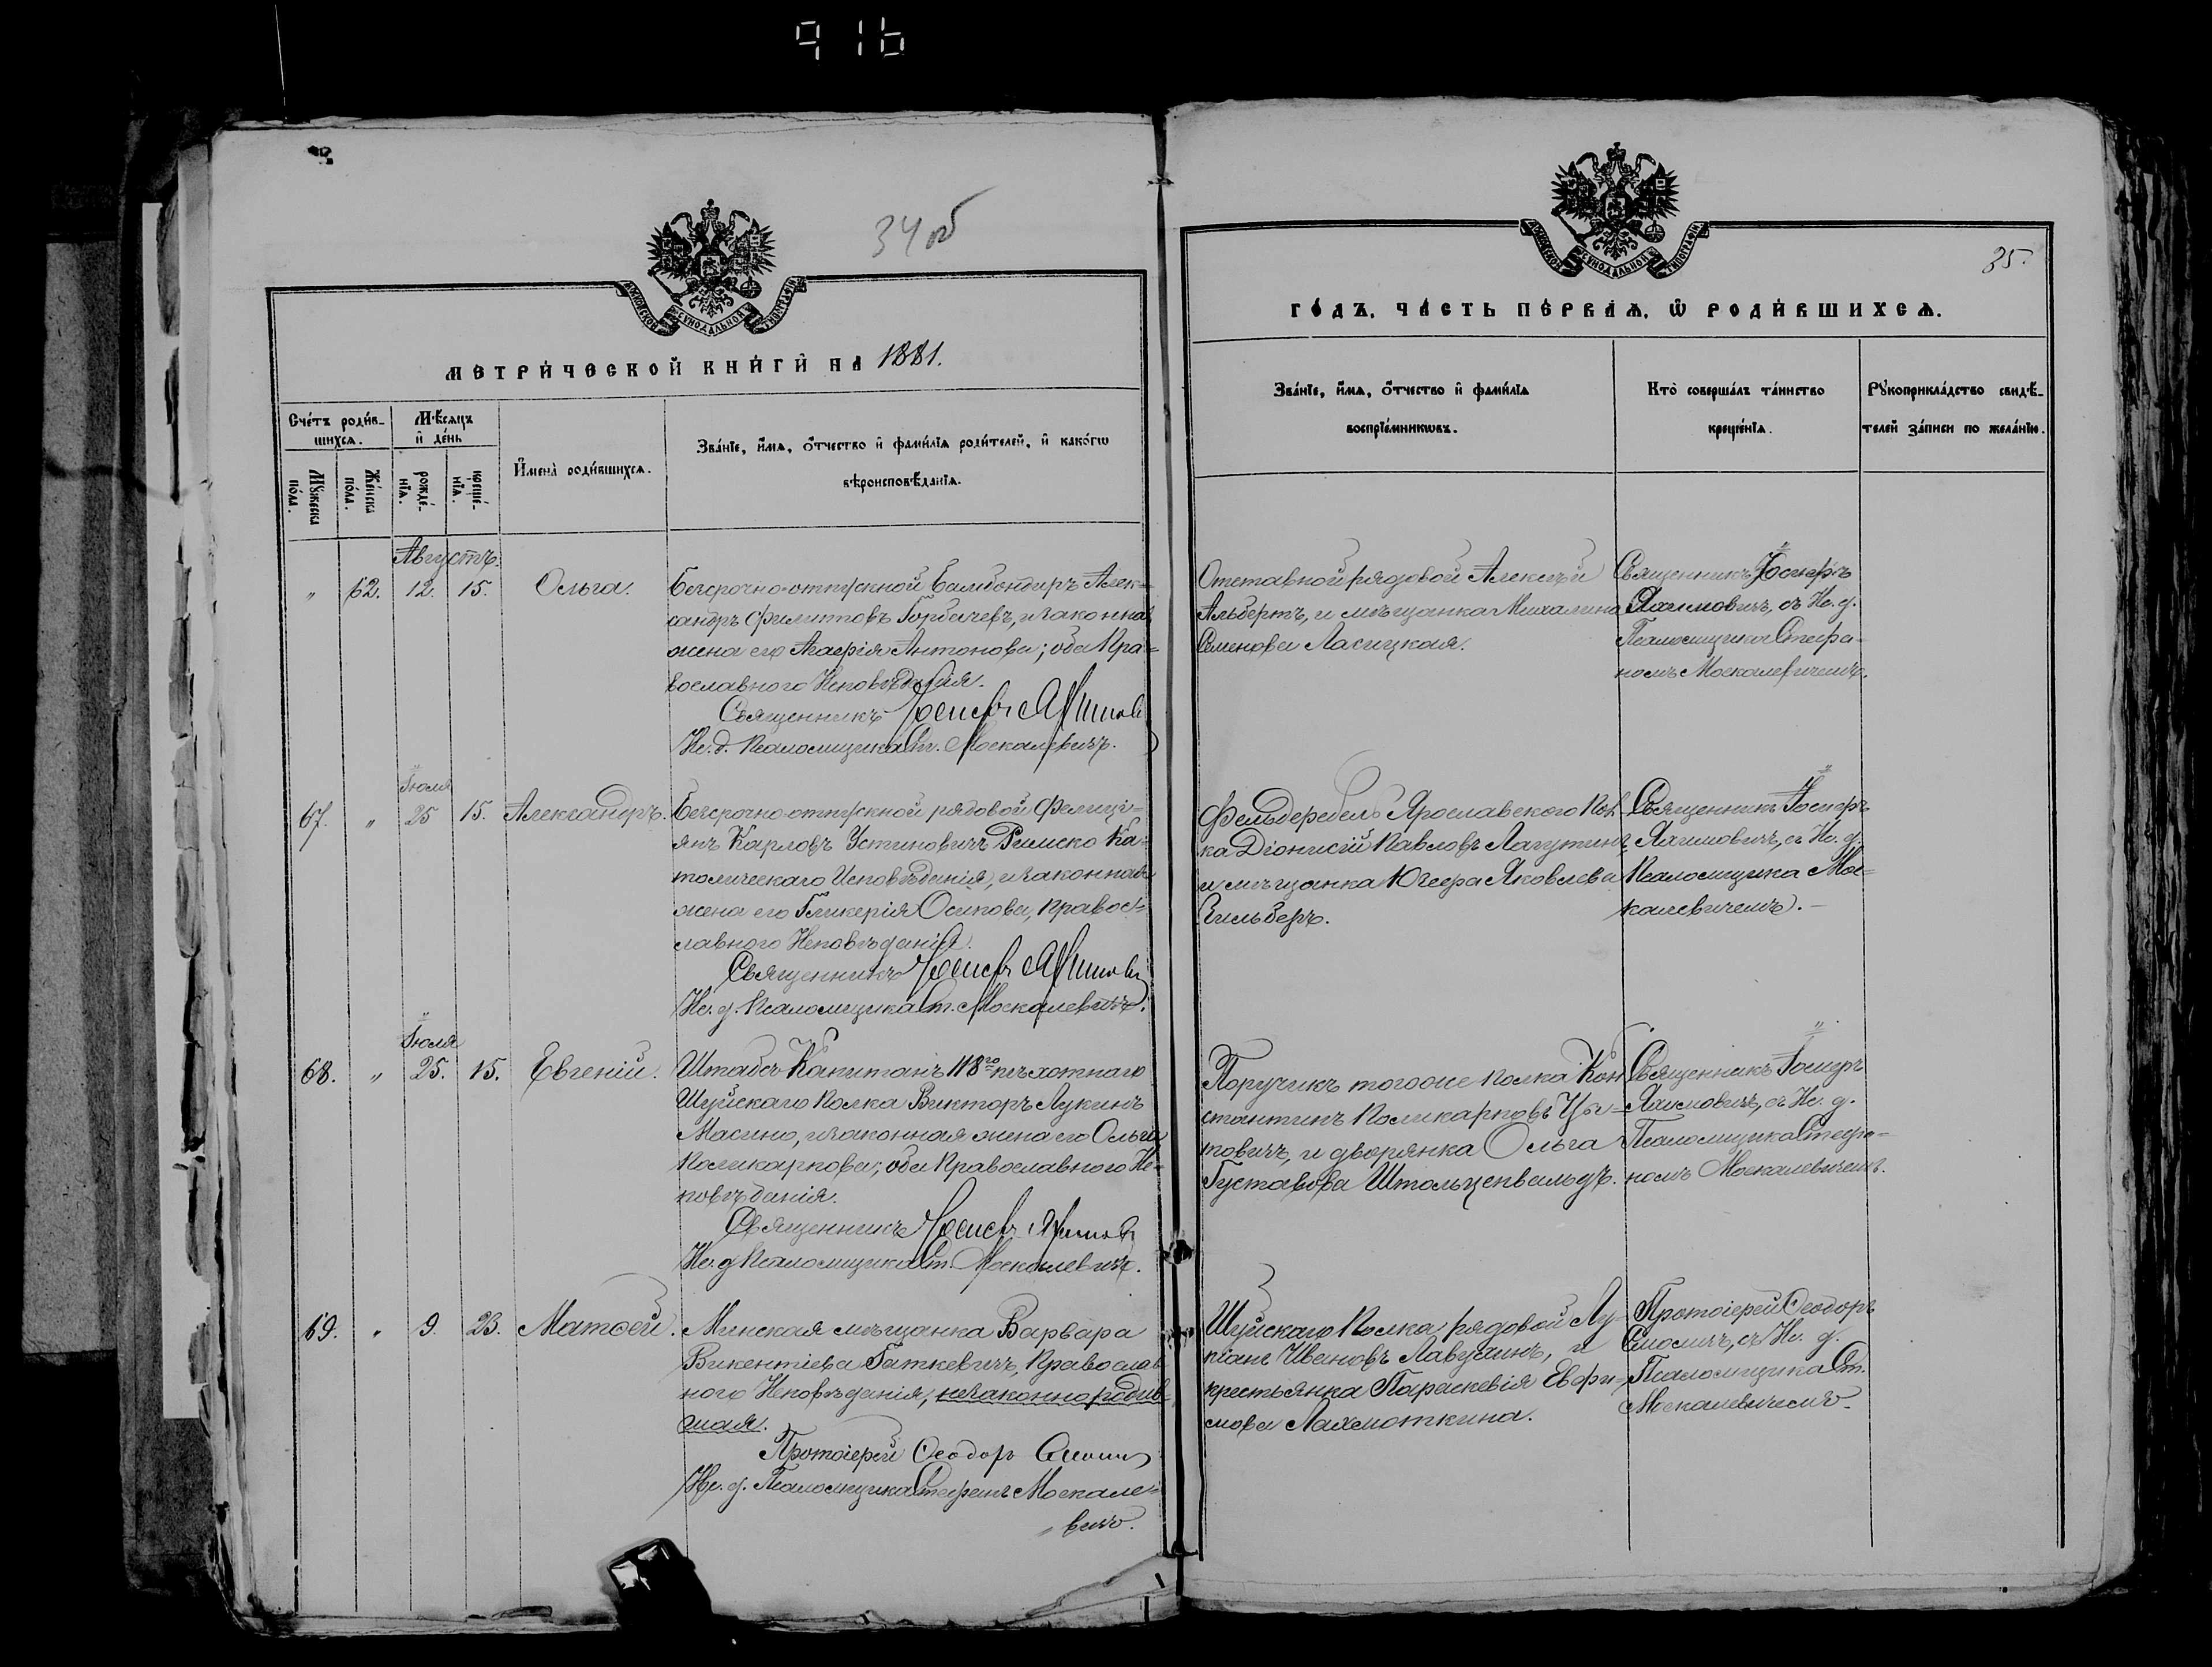 916
34об
МОСКОВСКОЙ СѴНОДАЛЬНОЙ ТИПОГРАФІИ
МЕТРИ́ЧЕСКОЙ КНИ́ГИ НА 1881.
Сче́тъ роди́в-
шихсѧ.
Мѣ́сѧцъ
и҆ де́нь
Мꙋ́жеска
по́ла.
Же́нска
по́ла.
рожде́-
нїѧ.
креще́-
нїѧ.
И҆мена̀ роди́вшихсѧ.
Зва́нїе, и҆́мѧ, ѻ҆́тчество и҆ фами́лїѧ роди́телей, и҆ како́гѡ
вѣроисповѣ́данїѧ.
Августъ.
" 62. 12. 15. Ольга. Безсрочно-отпускной Бамбондиръ Алек=
сандръ Филипповъ Горбачевъ, и законная
жена его Агафія Антонова; оба Пра=
вославного Исповѣданія.
Священникъ Іосифъ
Ис. д. Псаломщика Ст. Москалевичъ.
Іюля
67. " 25 15. Александръ. Безсрочно-отпускной рядовой Фелиці-
янъ Карловъ Устиновичъ Римско Ка-
толическаго Исповѣданія, и законная
жена его Гликерія Осипова, Правос=
лавного Исповѣданія.
Священникъ Іосифъ
Ис. д. Псаломщика Ст. Москалевичъ.
Іюля
68. " 25. 15. Евгеній. Штабсъ-Капитанъ 118го пѣхотнаго
Шуйскаго Полка Викторъ Лукинъ
Масино, и законная жена его Ольга
Поликарпова; оба Православного Ис-
повѣданія.
Священникъ Іосифъ
Ис. д Псаломщика Ст. Москалевичъ.
69. " 9. 23. Матѳей. Минская мѣщанка Варвара
Викентіева Гаткевичъ, Православ
ного Исповѣданія, незаконнородив-
шая.
Протоіерей Ѳеодоръ
Ис. д. Псаломщика Стефанъ Москале=
вичъ.
МОСКОВСКОЙ СѴНОДАЛЬНОЙ ТИПОГРАФІИ
35.
ГО́ДЪ. ЧА́СТЬ ПЕ́РВАѦ, Ѡ РОДИ́ВШИХСѦ.
Зва́нїе, и҆́мѧ, ѻ҆́тчество и҆ фами́лїѧ
воспрїе́мникѡвъ.
Кто̀ соверша́лъ та́инство
креще́нїѧ.
Рꙋкоприкла́дство свидѣ́-
телей за́писи по жела́нїю.
Отставной рядовой Алексѣй
Альбертъ, и мѣщанка Михалина
Семенова Ласицкая.
Священникъ Іосифъ
Яхимовичъ, съ Ис. д.
Псаломщика Стефа-
номъ Москалевичемъ.
Фельдфебель Ярославского Пол
ка Діонисій Павловъ Лагутинъ
и мѣщанка Юзефа Яковлева
Зильберъ.
Священникъ Іосифъ
Яхимовичъ, съ Ис. д.
Псаломщика Мос=
калевичемъ. —
Поручикъ того же полка Кон
стантинъ Поликарповъ Цы-
товичъ, и дворянка Ольга
Густавова Штольценвальдъ.
Священникъ Іосифъ
Яхимовичъ, съ Ис. д.
Псаломщика Стефа-
номъ Москалевичемъ.
Шуйскаго Полка рядовой Лу-
кіанъ Ивановъ Лавузинъ, и
крестьянка Параскевія Евфи-
мова Лахмоткина.
Протоіерей Ѳеодоръ
Смоличъ, съ Ис. д.
Псаломщика Ст.
Москалевичемъ.